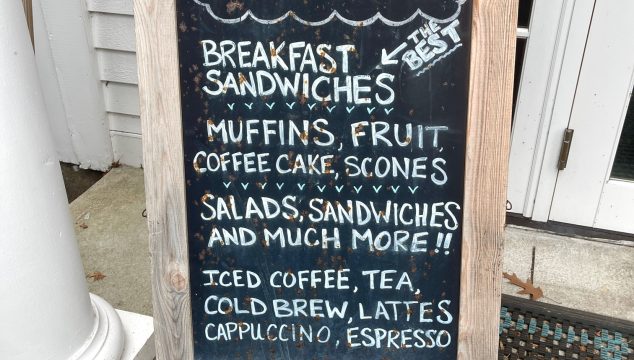 THE
BEST
BREAKFAST
SANDWICHES
MUFFINS, FRUIT
COFFEE CAKE, SCONES
SALADS, SANDWICHES
AND MUCH MORE!!
ICED COFFEE, TEA,
COLD BREW, LATTES
CAPPUCCINO, ESPRESSO